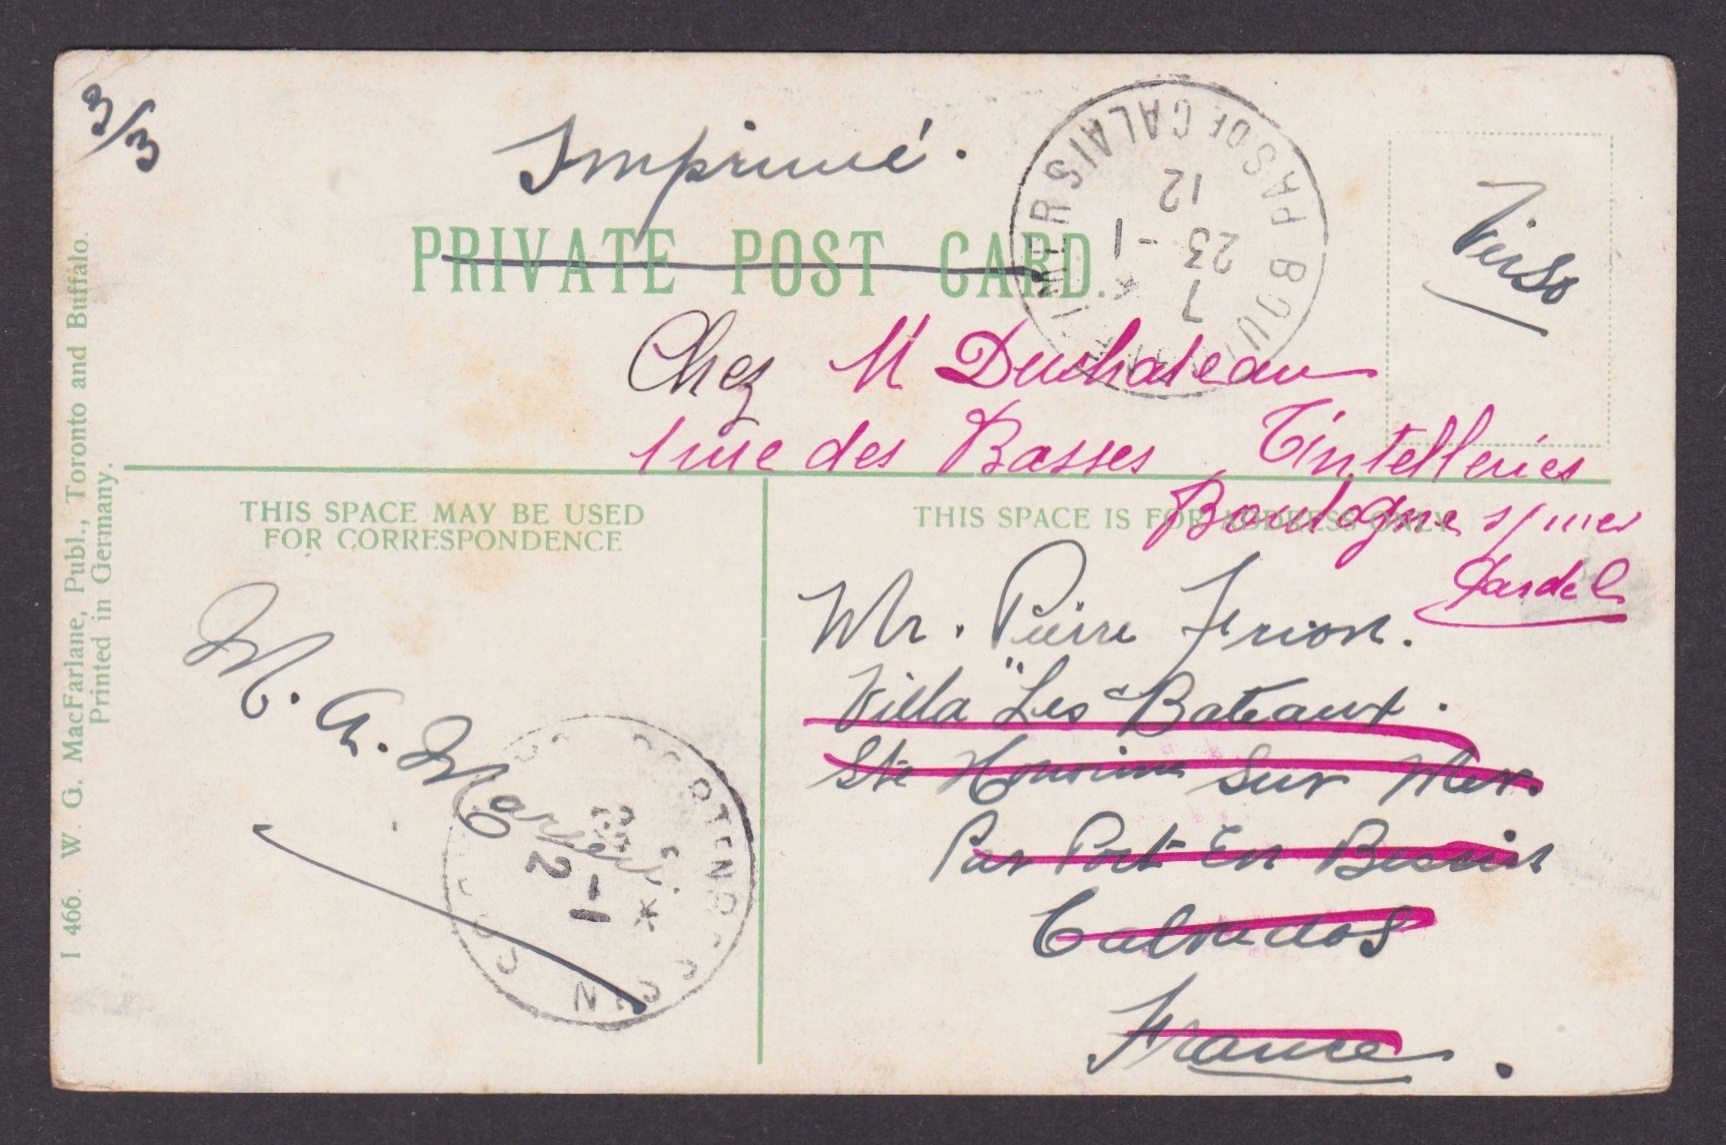 3/3
Imprimé.
PRIVATE POST CARD.
BOULOGNE-SUR-MER PAS DE CALAIS
7 *
23 - 1
12
Verso
Chez M Duchateau
1 rue des Basses Tintelleries
Boulogne s/ mer
THIS SPACE MAY BE USED
FOR CORRESPONDENCE
THIS SPACE IS FOR ADDRESS ONLY
Mr. Pierre Frion.
Villa "Les Bateaux.
Ste Honorine Sur Mer.
Par Port En Bessin
Calvados
France.
M. A.
I 466. W. G. MacFarlane, Publ., Toronto and Buffalo.
Printed in Germany.